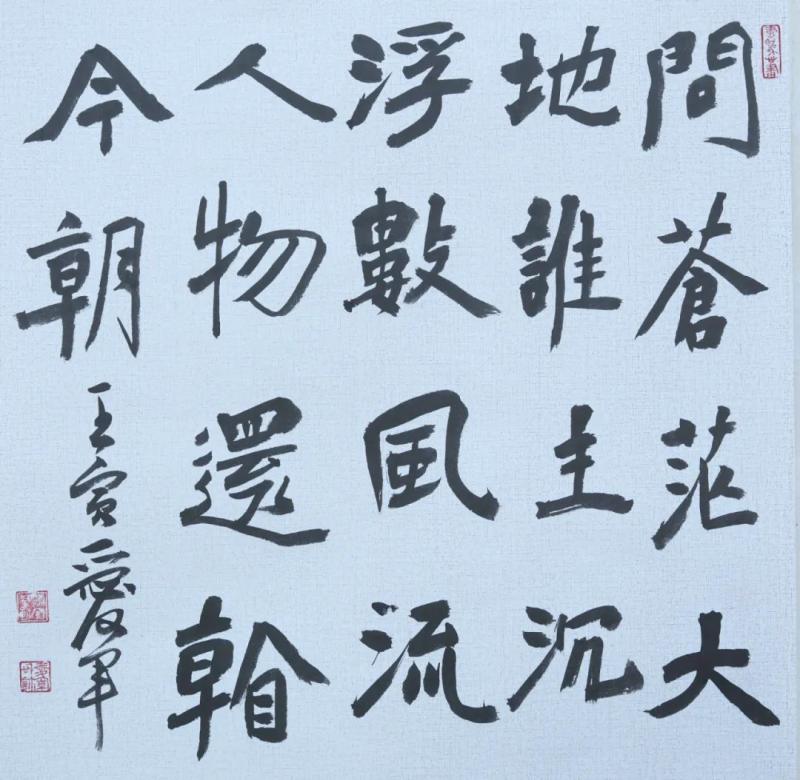 問蒼茫大
地誰主沉
浮數風流
人物還
今朝
壬寅愛軍